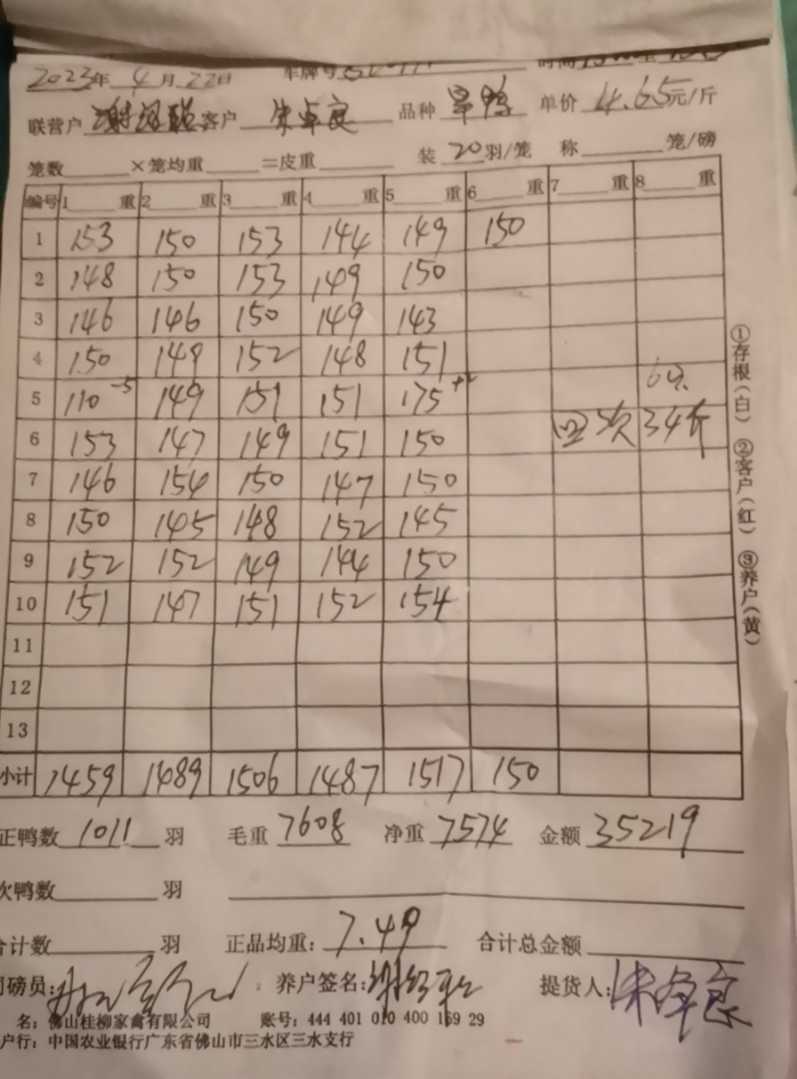 2023年 4 月 22日 车牌号
联营户 客户 朱卓良 品种 旱鸭 单价 4.65元/斤
笼数 ×笼均重 =皮重 装 20羽/笼 称 笼/磅
编号 1 重 2 重 3 重 4 重 5 重 6 重 7 重 8 重
1 153 150 153 144 149 150
2 148 150 153 149 150
3 146 146 150 149 143
4 150 149 152 148 151
5 110 -5 149 151 151 175
6 153 147 149 151 150 次 34斤
7 146 154 150 147 150
8 150 145 148 152 145
9 152 152 149 144 150
10 151 147 151 152 154
11
12
13
小计 1459 1489 1506 1487 1517 150
正鸭数 1011 羽 毛重 7608 净重 7574 金额 35219
次鸭数 羽
合计数 羽 正品均重: 7.49 合计总金额
磅员: 养户签名: 提货人: 朱卓良
名: 佛山桂柳家禽有限公司 账号: 444 401 010 400 169 29
户行: 中国农业银行广东省佛山市三水区三水支行
①存根(白) ②客户(红) ③养户(黄)